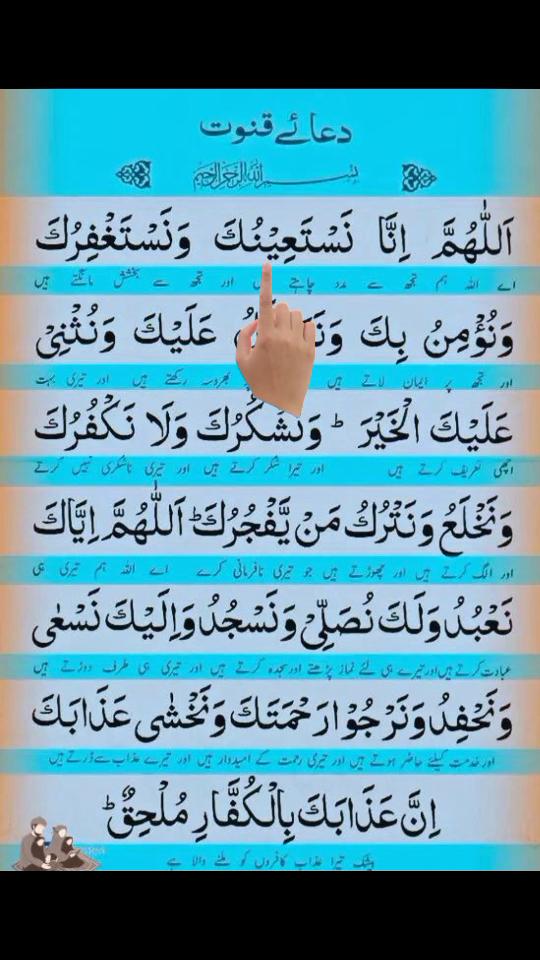 دعائے قنوت
بسم الله الرحمن الرحيم
اَللّٰهُمَّ اِنَّا نَسْتَعِيْنُكَ وَنَسْتَغْفِرُكَ
اے اللہ ہم تجھ سے مدد چاہتے اور تجھ سے بخشش مانگتے ہیں
وَنُؤْمِنُ بِكَ عَلَيْكَ وَنُثْنِيْ
اور تجھ پر ایمان لاتے ہیں بھروسہ رکھتے ہیں اور تیری بہت
عَلَيْكَ الْخَيْرَ ؕ وَنَشْكُرُكَ وَلَا نَكْفُرُكَ
اچھی تعریف کرتے ہیں اور تیرا شکر کرتے ہیں اور تیری ناشکری نہیں کرتے
وَنَخْلَعُ وَنَتْرُكُ مَنْ يَّفْجُرُكَ ؕ اَللّٰهُمَّ اِيَّاكَ
اور الگ کرتے ہیں اور چھوڑتے ہیں جو تیری نافرمانی کرے اے اللہ ہم تیری ہی
نَعْبُدُ وَلَكَ نُصَلِّيْ وَنَسْجُدُ وَاِلَيْكَ نَسْعٰى
عبادت کرتے ہیں اور تیرے ہی لئے نماز پڑھتے اور سجدہ کرتے ہیں اور تیری ہی طرف دوڑتے ہیں
وَنَحْفِدُ وَنَرْجُوْا رَحْمَتَكَ وَنَخْشٰى عَذَابَكَ
اور خدمت کیلئے حاضر ہوتے ہیں اور تیری رحمت کے امیدوار ہیں اور تیرے عذاب سے ڈرتے ہیں
اِنَّ عَذَابَكَ بِالْكُفَّارِ مُلْحِقٌ ؕ
بیشک تیرا عذاب کافروں کو ملنے والا ہے